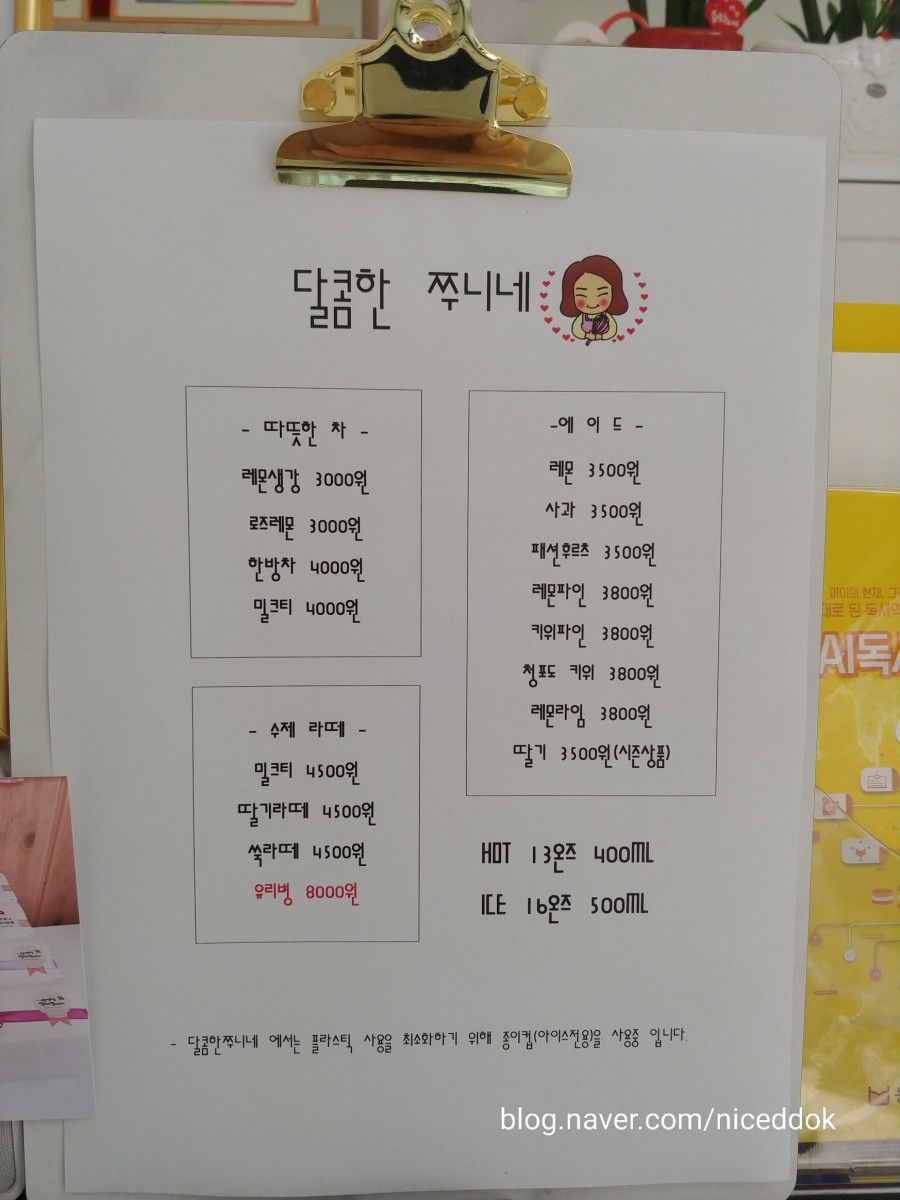 달콤한 쭈니네
- 따뜻한 차 -
레몬생강 3000원
로즈레몬 3000원
한방차 4000원
밀크티 4000원
- 수제 라떼 -
밀크티 4500원
딸기라떼 4500원
쑥라떼 4500원
유리병 8000원
-에 이 드 -
레몬 3500원
사과 3500원
패션후르츠 3500원
레몬파인 3800원
키위파인 3800원
청포도 키위 3800원
레몬라임 3800원
딸기 3500원(시즌상품)
HOT 13온즈 400ML
ICE 16온즈 500ML
- 달콤한쭈니네 에서는 플라스틱 사용을 최소화하기 위해 종이컵(아이스전용)을 사용중 입니다.
아이의 현재, 그
대로 된 독서
AI독
blog.naver.com/niceddok